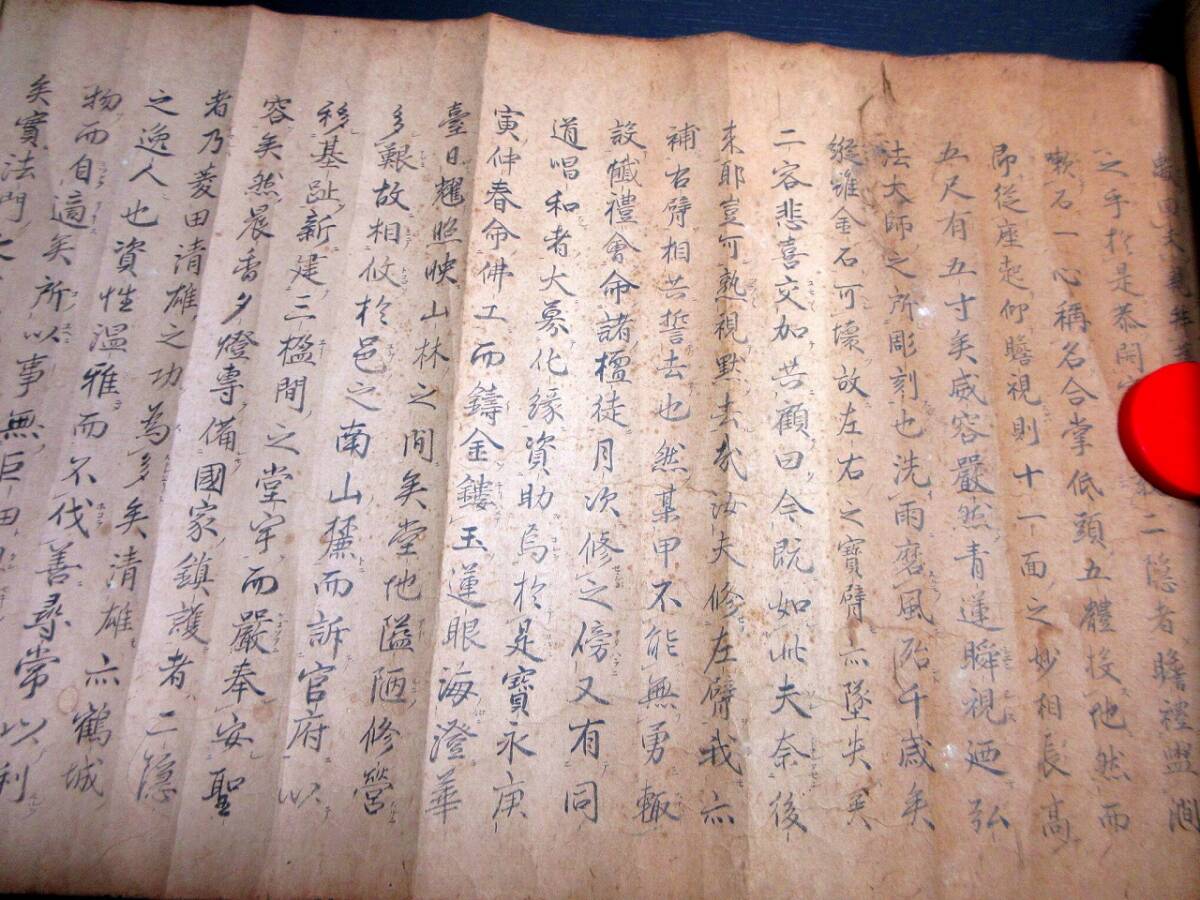 二隠者瞻禮盟澗
之手於是恭開
嗽石一心稱名合掌低頭五體投地然而
即從座起仰瞻視則十一面之妙相長高
五尺有五寸矣威容嚴然青蓮瞬視迺弘
法大師之所彫刻也洗雨磨風殆千歳矣
縦雖金石可壊故左右之寶臂亦墜失矣
二容悲喜交加共顧曰今既如此夫奈後
来耶豈可熟視默去哉汝夫修左臂我亦
補右臂相共誓去也然某甲不能無勇輙
設懺禮會命諸檀徒月次修之傍又有同
道唱和者大募化縁資助焉於是寶永庚
寅仲春命佛工而鑄金鏤玉蓮眼海澄華
臺日耀照映山林之間矣堂地隘陋修營
多艱故相攸於邑之南山麓而訴官府以
移基趾新建三楹間之堂宇而嚴奉安聖
容矣然晨香夕燈專備國家鎮護者二隠
者乃菱田清雄之功為多矣清雄亦鶴城
之逸人也資性温雅而不伐善尋常以利
物而自適矣所以事無巨田
矣實法門